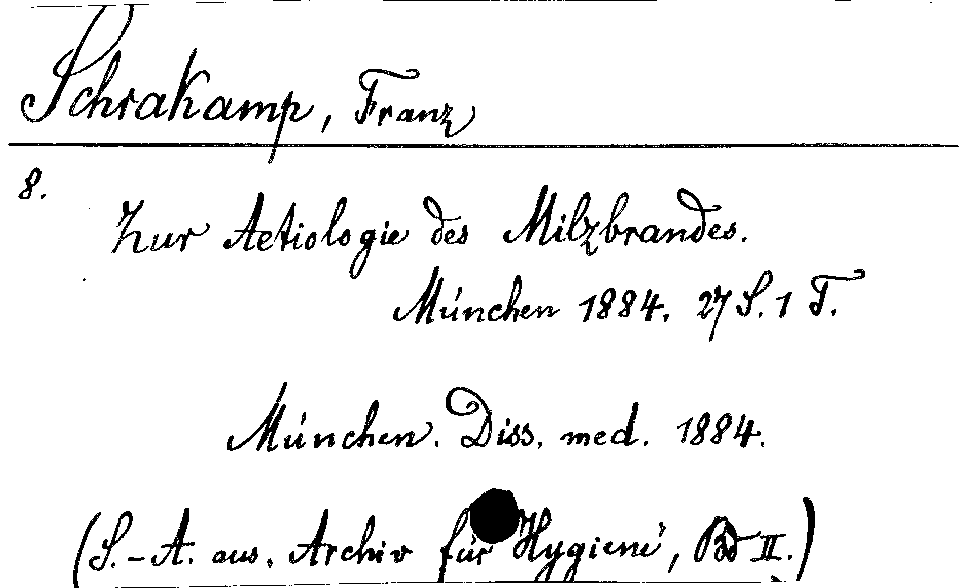 Schrakamp, Franz
8.
Zur Aetiologie des Milzbrandes.
München 1884. 27 S. 1 T.
München. Diss. med. 1884.
(S.-A. aus. Archiv für Hygiene, Bd II.)